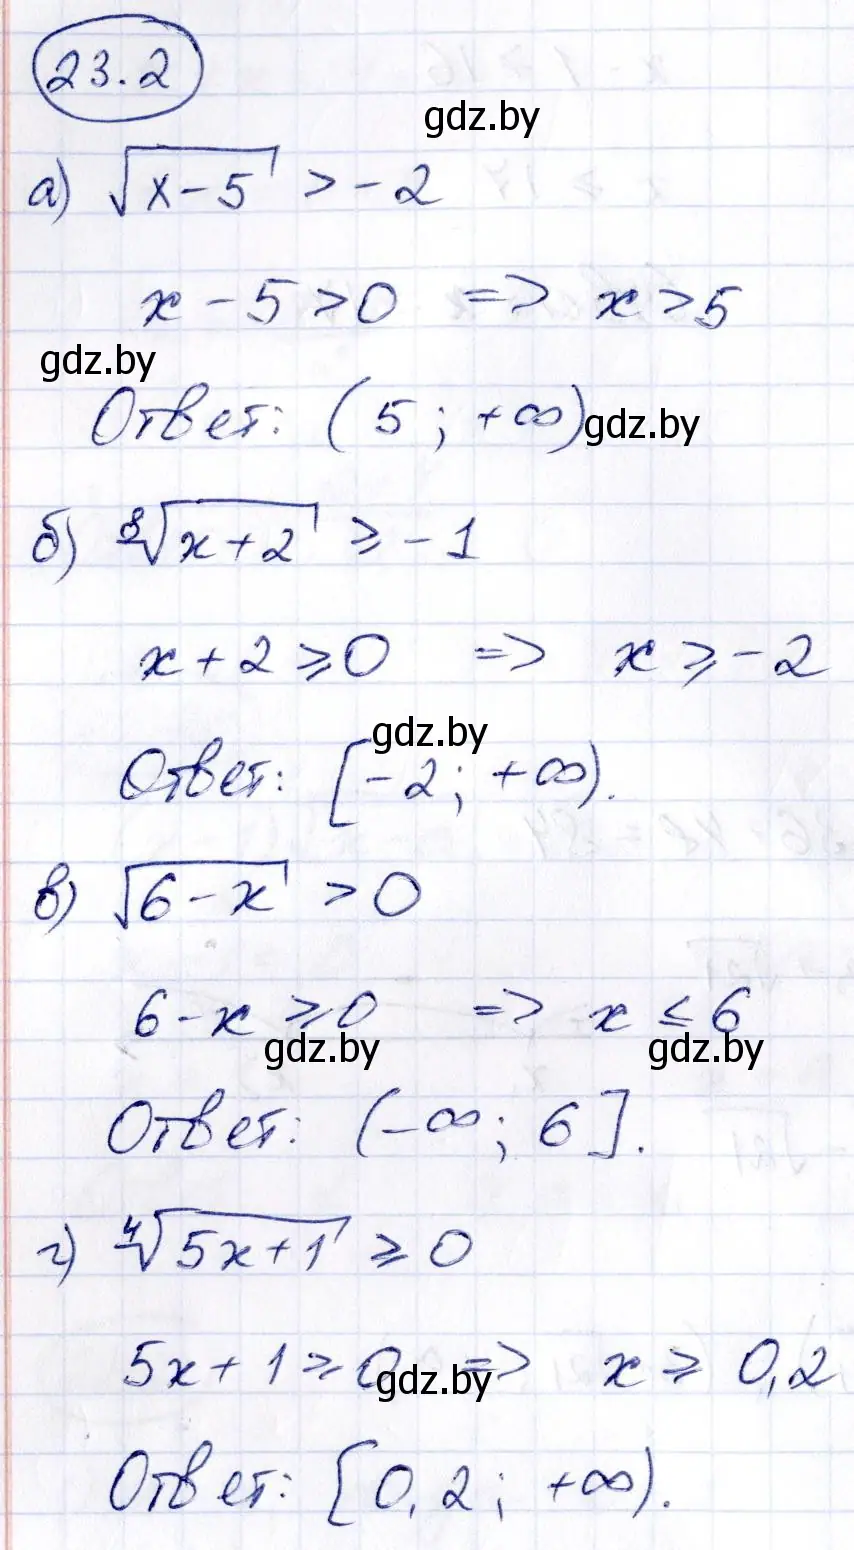 23.2
gdz.by
а) √(x-5) > -2
x - 5 > 0 => x > 5
gdz.by
Ответ: (5; +∞)
gdz.by
б) ⁸√(x+2) ≥ -1
x + 2 ≥ 0 => x ≥ -2
gdz.by
Ответ: [-2; +∞).
в) √(6-x) > 0
6 - x ≥ 0 => x ≤ 6
gdz.by gdz.by
Ответ: (-∞; 6].
г) ⁴√(5x+1) ≥ 0
5x + 1 ≥ 0 => x ≥ 0,2
gdz.by
Ответ: [0,2; +∞).